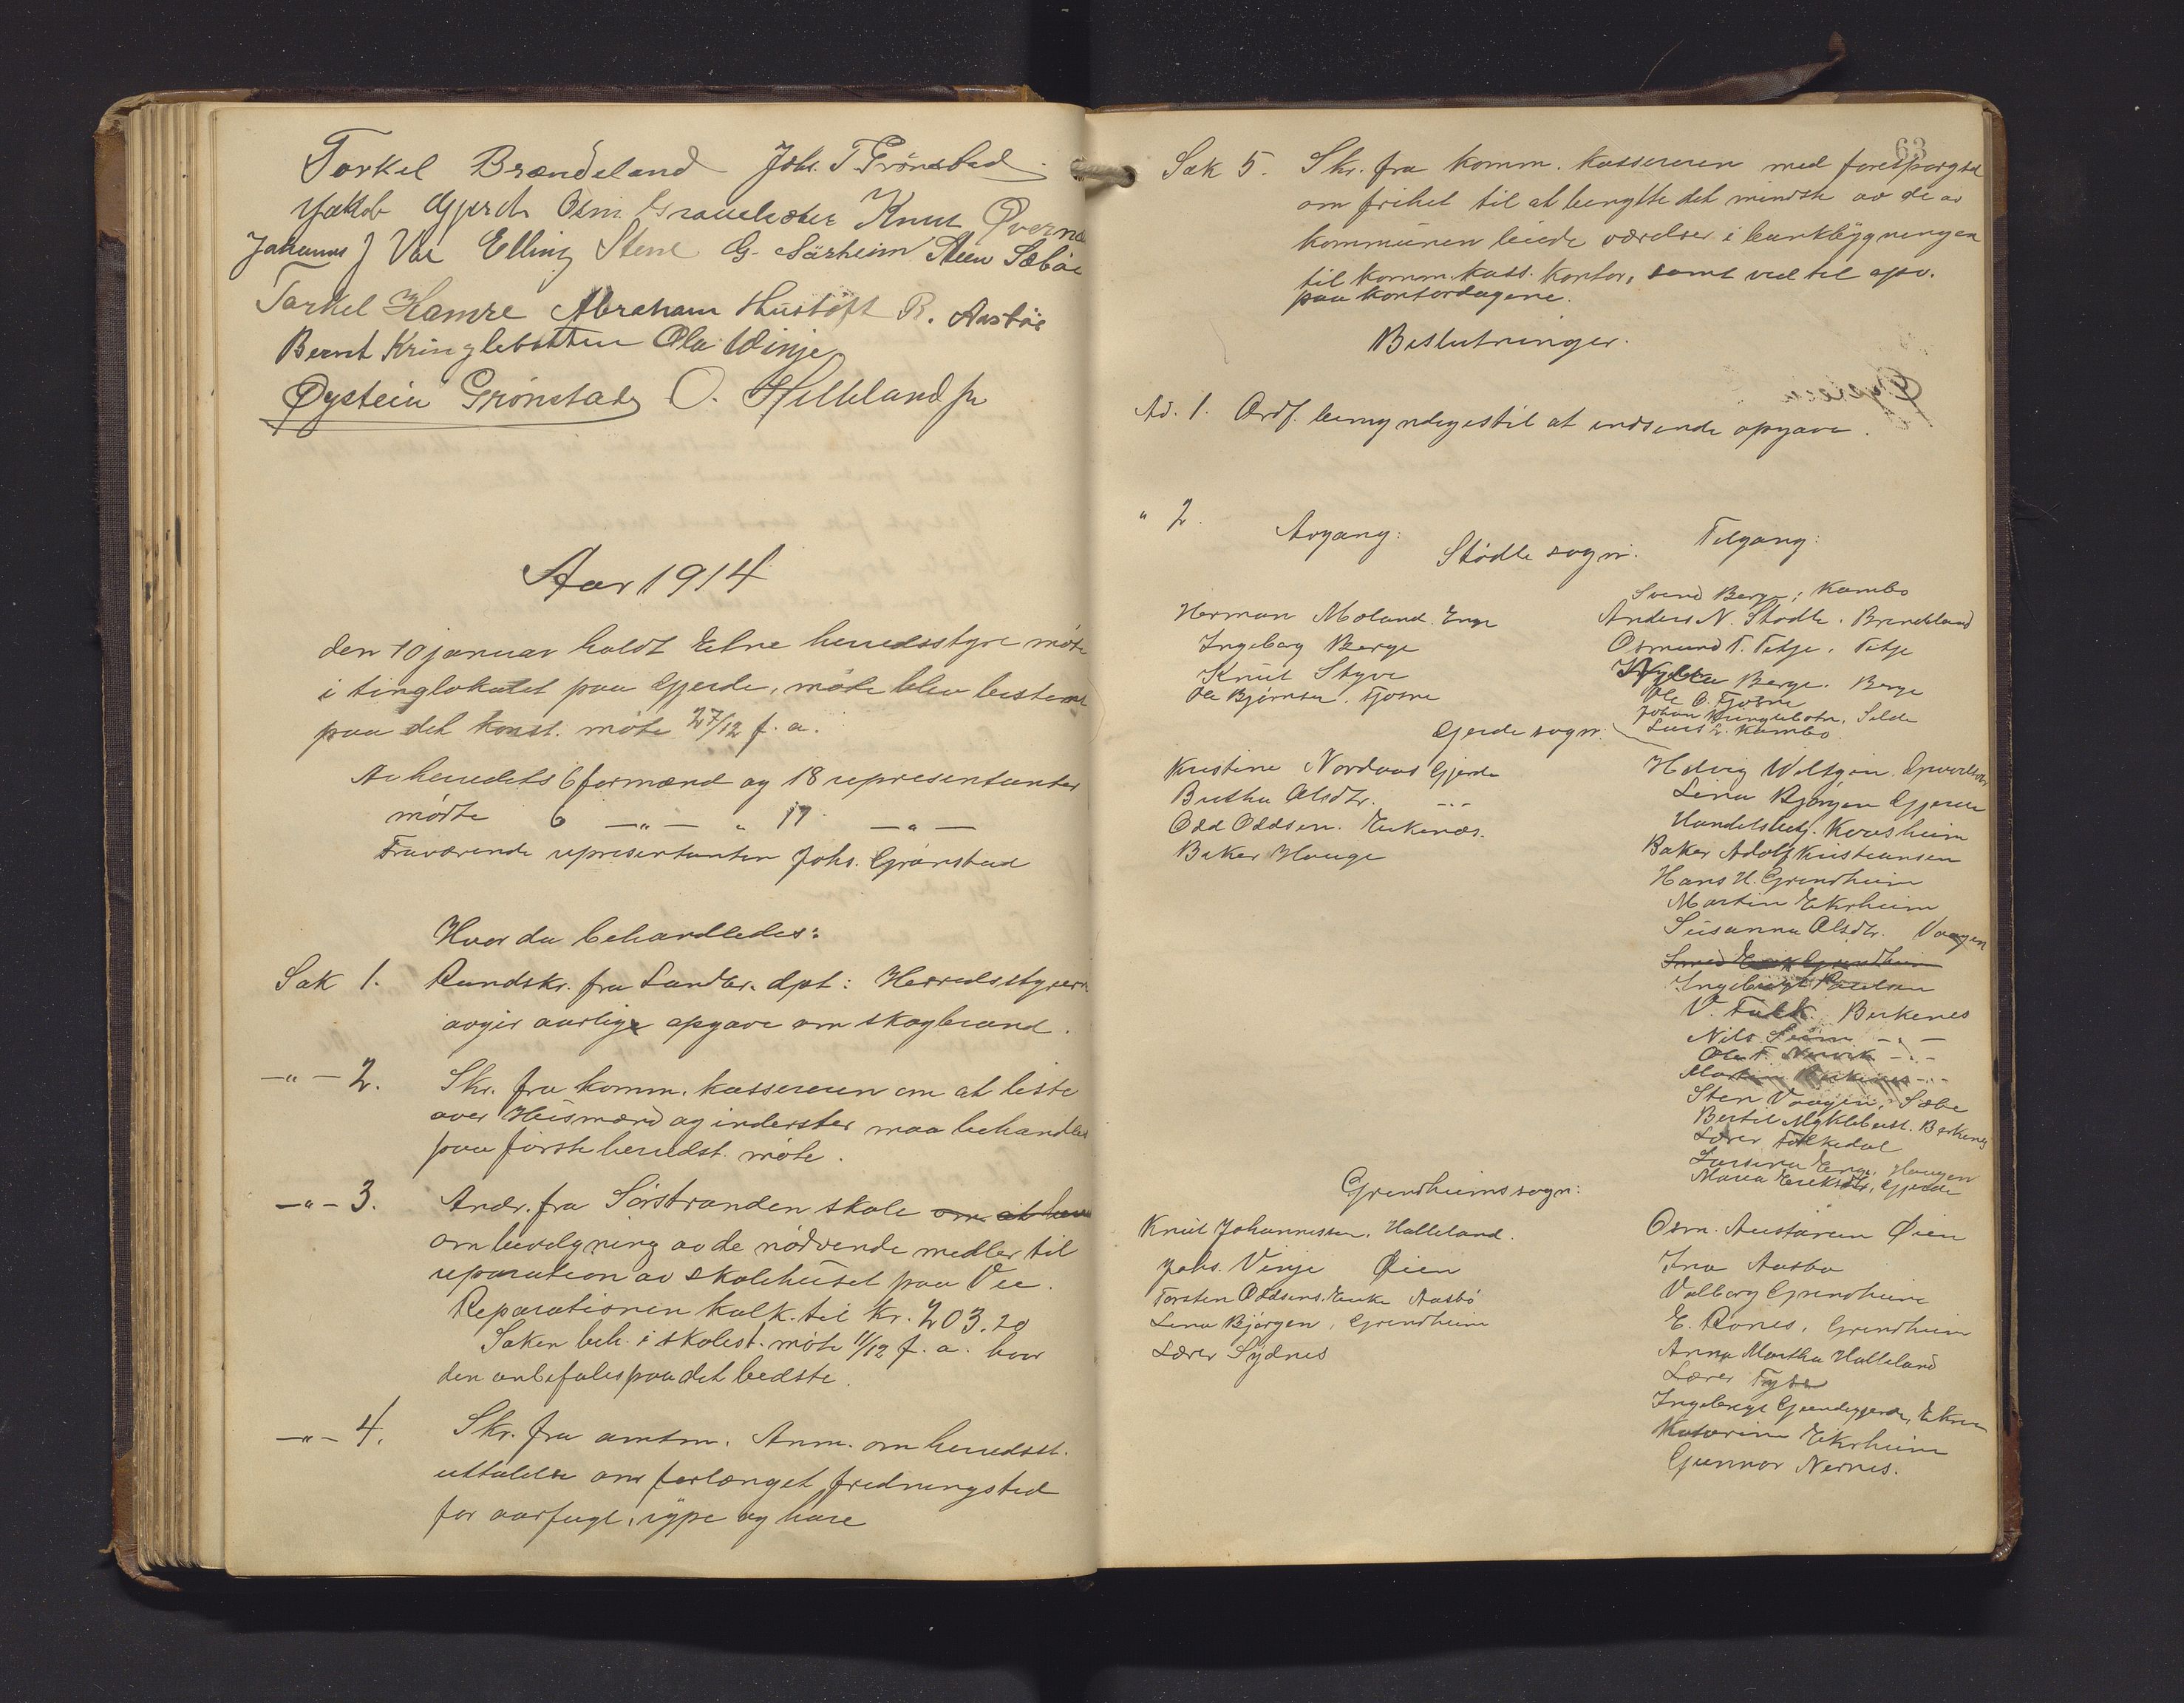 Torkel Brændeland Johs. T Grönstad
Jakob Gjerde Osm. Knut Qverna
Johannes J Vee Elling Stene G. Särheim Steen Sæbøe
Torkel Hamre Abraham Hustoft R. Aasböe
Bernt Kringlebotten Ola Winje
Øystein Grönstad O. Helleland jr
Aar 1914
den 10 januar holdt Etne herredsstyre möte
i tinglokalet paa Gjerde, möte blev bestemt
paa det konst. möte 27/12 f. a.
Av herredets 6 formænd og 18 representanter
mödte 6 —„— „ 17 —„—
Fraværende representanten Johs. Grönstad
Hvor da behandledes:
Sak 1. Rundskr. fra Landbr. dpt: Herredsstyrern
avgir aarlige opgave om skogbrand.
—„— 2. Skr. fra komm. kassereren om at liste
over Husmænd og inderster maa behandles
paa förste herredst. möte.
—„— 3. Andr. fra Sörstranden skole om at
om bevilgning av de nödvende midler til
reparation av skolehuset paa Vee.
Reparationen kalk. til kr. 203.20
Saken beh. i skolest. möte 11/12 f. a. hvor
den anbefales paa det bedste.
—„— 4. Skr. fra amtm. Anm. om herredsst.
uttalelse om forlænget fredningstid
for aarfugl, rype og hare
63
Sak 5. Skr. fra komm. kassereren med forespörgsel
om frihet til at benytte det mindste av de av
kommunen leiede værelser i bankbygningen
til komm. kass. kontor, samt ved til opv.
paa kontordagene.
Beslutninger.
Ad. 1. Ordf. bemyndiges til at indsende opgave.
„ 2. Avgang: Tilgang:
Stödle sogn.
Svend Berge, Kambo
Herman Moland. Enge Anders N. Stödle. Brendeland
Ingeborg Berge Osmund T. Tetje. Tetje
Knut Styve Berge. Berge
Ole Björnsen. Fjösne Ole O. Fjösne
Johan Kringlebotn, Silde
Lars L. Kambo
Gjerde sogn:
Kristine Nordaas Gjerde Helvig
Bertha Olsdtr. -„- Lina Björgen Gjerde
Odd Oddsen. Eikenæs. Handelsbetj. Kvasheim
Baker Hauge Baker Adolf Kristiansen
Hans H. Grindheim
Martin Ekrheim
Susanna Olsdtr. Vaagen
Grindheim
Ingeborg Paulsen
V. Falk. Birkenes
Nils -„-
Ole T. -„-
Martin -„-
Sten Vaagen, Sæbe
Bertil Myklebust. Birkenes
Lærer Folkedal
Lursina Enge, Haugen
Maria Eriksdtr., Gjerde
Grindheims sogn:
Knut Johannessen, Halleland. Osm. Austarun Øien
Johs. Vinje Øien Ina Aasbø
Torsten Oddsens. Enke Aasbö Valborg Grindheim
Lina Björgen, Grindheim E. Rones, Grindheim
Lærer Sydnes Anna Martha Halleland
Lærer
Ingeborg Grindegjerde, Etne
Katarina Eikrheim
Gunnar Nernes.